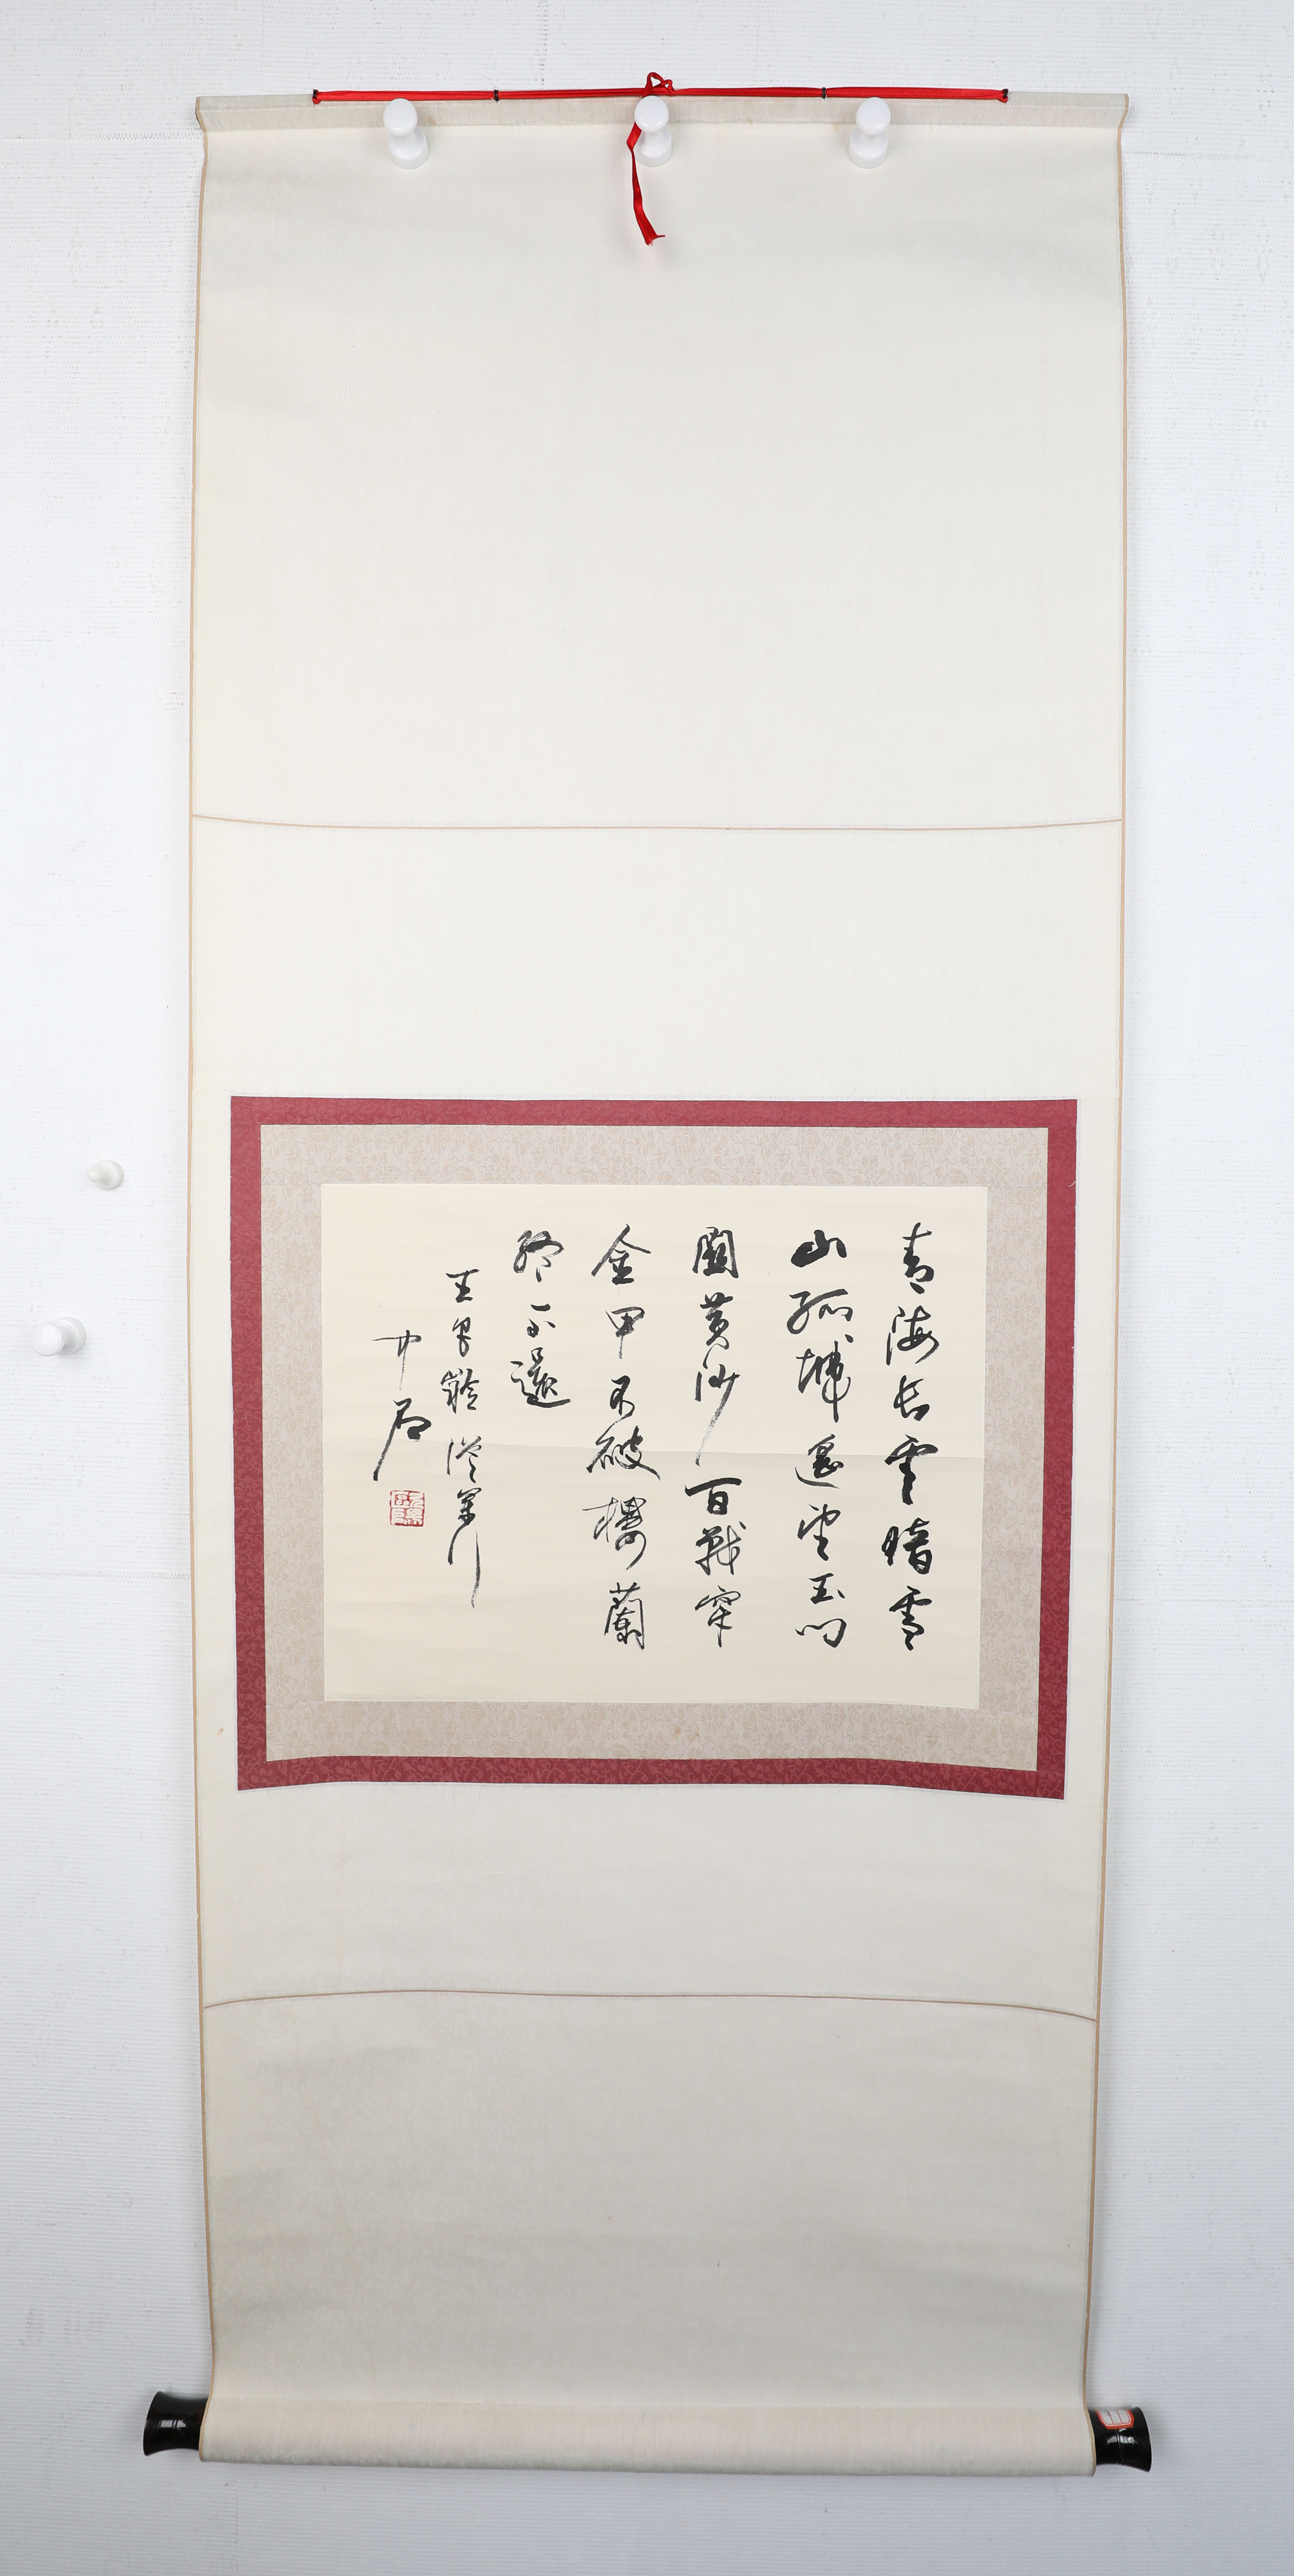 青海長雲暗雪
山孤城遙望玉門
關黃沙百戰穿
金甲不破樓蘭
終不還
王昌齡從軍行
尹石